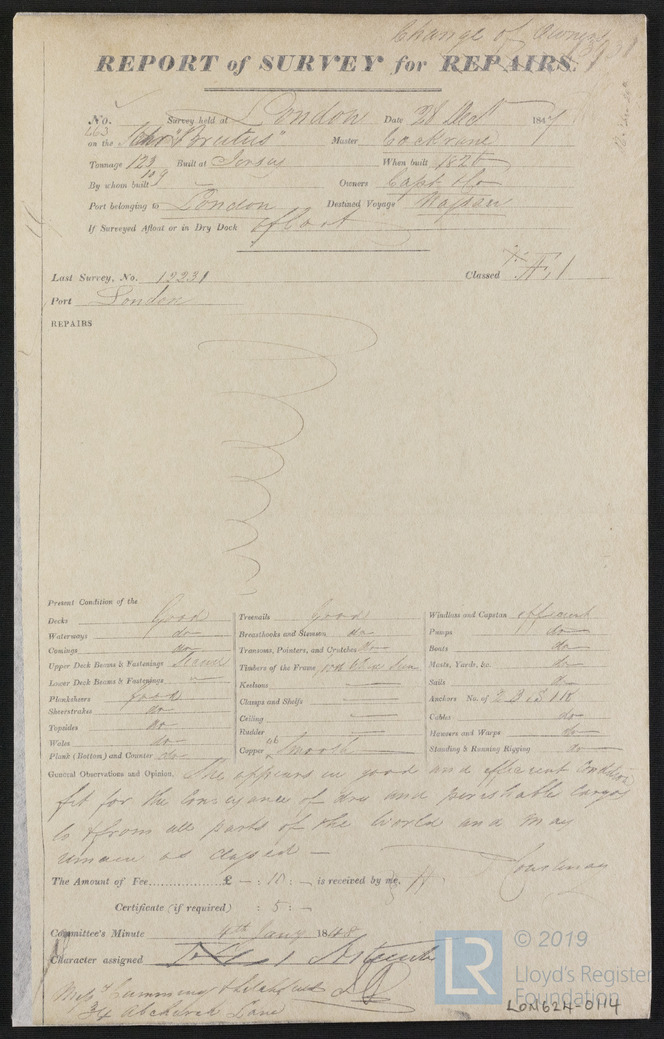 Change of Owners
REPORT of SURVEY for REPAIRS.
No. 463 Survey held at London Date 28 Decr 1847
on the Schr "Brutus" Master Cockrane
Tonnage 123 109 Built at Jersey When built 1826
By whom built Owners Capt & Co
Port belonging to London Destined Voyage Nassau
If Surveyed Afloat or in Dry Dock Afloat
Last Survey, No. 12231 Classed Æ 1
Port London
REPAIRS
Present Condition of the
Decks Good
Waterways do
Comings do
Upper Deck Beams & Fastenings
Lower Deck Beams & Fastenings
Planksheers good
Sheerstrakes do
Topsides do
Wales do
Plank (Bottom) and Counter do
Treenails Good
Breasthooks and Stemson do
Transoms, Pointers, and Crutches do
Timbers of the Frame
Keelsons
Clamps and Shelfs
Ceiling
Rudder
Copper Smooth
Windlass and Capstan efficient
Pumps do
Boats do
Masts, Yards, &c. do
Sails do
Anchors No. of
Cables do
Hawsers and Warps do
Standing & Running Rigging do
General Observations and Opinion. She appears in good and efficient Condition
fit for the Conveyance of dry and perishable cargoes
to & from all parts of the World and may
remain as classed —
The Amount of Fee............£ — : 10 : — is received by me,
Certificate (if required) : 5 : —
Committee's Minute 4th Jany 1848
Character assigned
Messrs
34 Abchurch Lane
LR
© 2019
Lloyd's Register
Foundation
LON624-0114